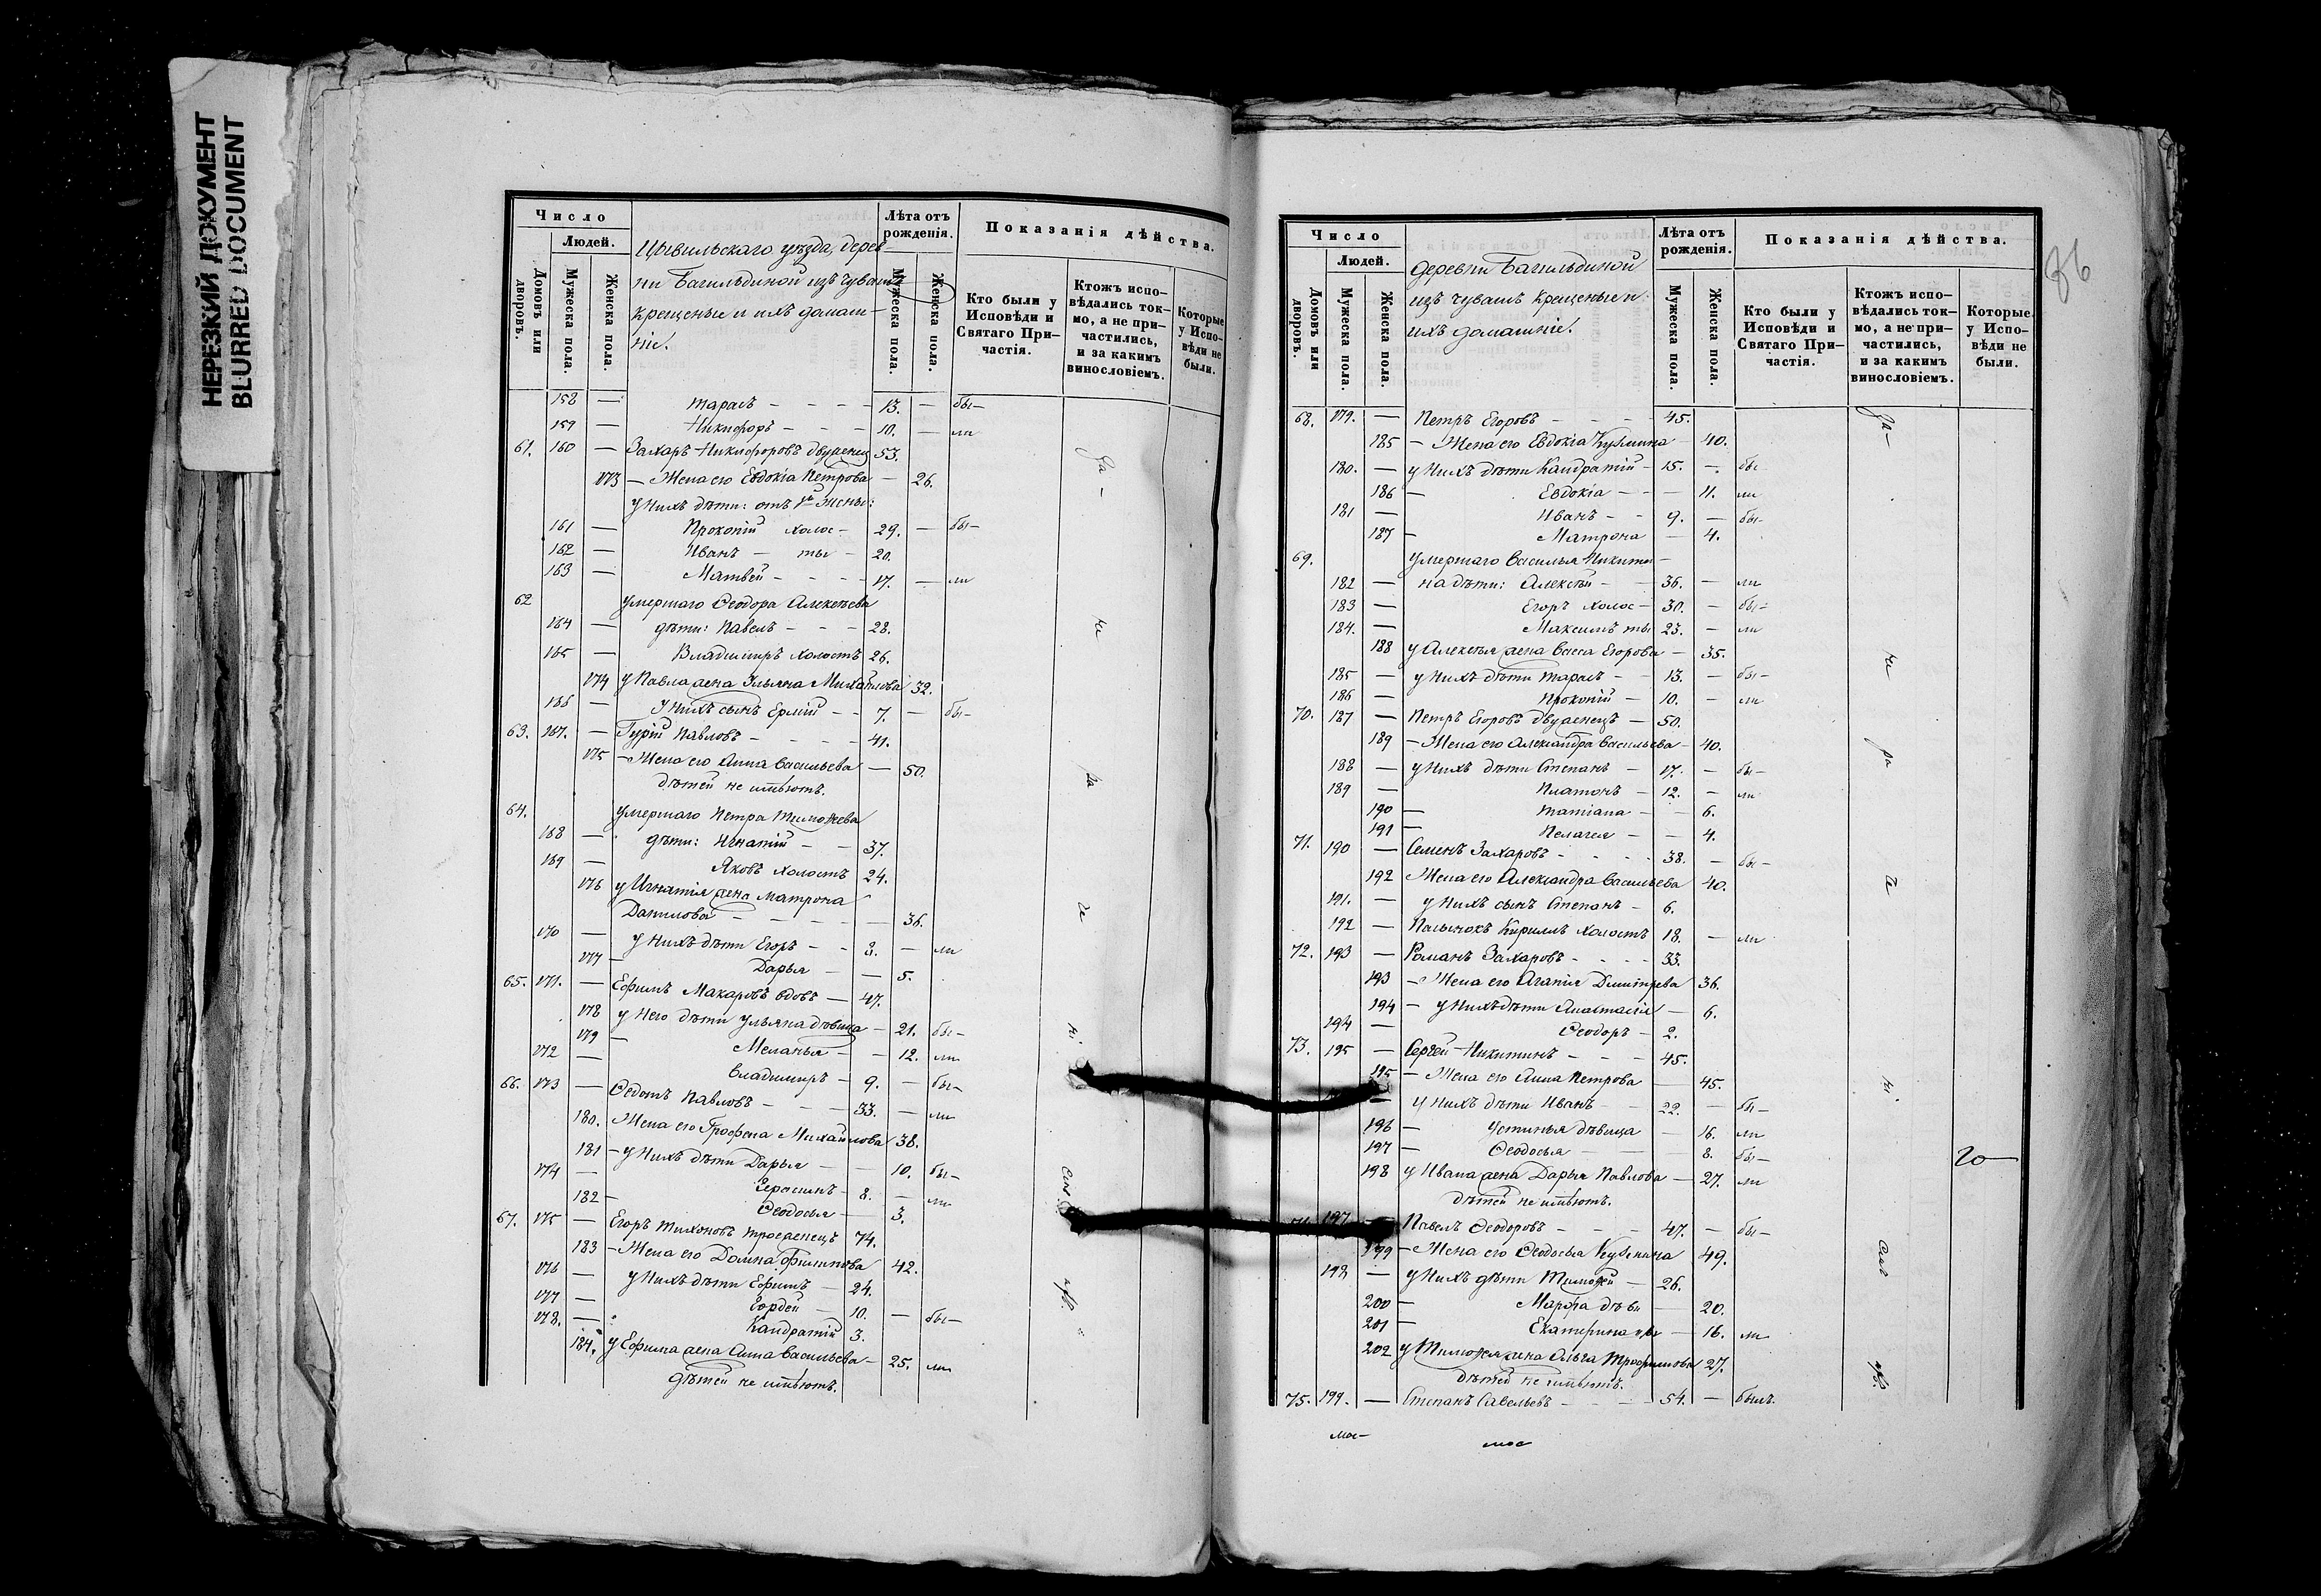 НЕРЕЗКИЙ ДОКУМЕНТ
BLURRED DOCUMENT
Число
Людей.
Домовъ или дворовъ.
Мужеска пола.
Женска пола.
Цывильскаго уѣзда, дерев-
ни Багильдиной изъ чувашъ
крещеные и ихъ домаш-
ніе.
Лѣта отъ рожденія.
Мужеска пола.
Женска пола.
Показанія дѣйства.
Кто были у Исповѣди и Святаго При-частія.
Ктожъ испо-вѣдались ток-мо, а не при-частились, и за какимъ винословіемъ.
Которые у Испо-вѣди не были.
158 — Тарасъ - - - - 13. — бы-
159 — Никифоръ - - - 10. — ли
61. 160 — Захаръ Никифоровъ двуженец 53.
173 — Жена его Евдокія Петрова — 26.
у нихъ дѣти: отъ 1й жены:
161 — Прокопій холос- 29. — бы-
162 — Иванъ — ты - 20.
163 — Матвей - - - - 17. — ли
62 умершаго Ѳеодора Алексѣева
164 — дѣти: Павелъ - - - 28.
165 — Владимиръ холостъ 26.
174 у Павла жена Ульяна Михайлова 32.
166 — у нихъ сынъ Ермій - - 7. — бы-
63. 167. — Гурій Павловъ - - - - 41.
175 — Жена его Анна Васильева — 50.
дѣтей не имѣютъ.
64. умершаго Петра Тимоѳеева
168 — дѣти: Игнатій - - 37.
169 — Яковъ холостъ 24.
176 у Игнатія жена Матрона
Данилова - - - - — 36.
170 — у нихъ дѣти Егоръ - - 8. — ли
177 — Дарья - — 5.
65. 171. — Ефимъ Макаровъ вдовъ — 47.
178 у него дѣти Ульяна дѣвица — 21. бы-
179 — Меланья - - 12. ли
172 — Владимиръ - 9. — бы-
66. 173 — Ѳедотъ Павловъ - - - 33. — ли
180. Жена его Грофена Михайлова 38.
181 — у нихъ дѣти Дарья — 10. бы-
174 — Герасимъ - 8. — ли
182 — Ѳеодосья — 3.
67. 175 — Егоръ Тихоновъ троеженецъ 74.
183 — Жена его Домна Филипова 42.
176 — у нихъ дѣти Ефимъ - 24.
177 — Гордей — 10. — бы-
178. — Кандратій 3.
184. у Ефима жена Анна Васильева - 25. ли
дѣтей не имѣютъ.
Число
Людей.
Домовъ или дворовъ.
Мужеска пола.
Женска пола.
деревни Багильдиной
изъ чувашъ крещеные и
ихъ домашніе.
Лѣта отъ рожденія.
Мужеска пола.
Женска пола.
Показанія дѣйства.
Кто были у Исповѣди и Святаго При-частія.
Ктожъ испо-вѣдались ток-мо, а не при-частились, и за какимъ винословіемъ.
Которые у Испо-вѣди не были.
86
68. 179. — Петръ Егоровъ - - - 45.
185 — Жена его Евдокія Кузмина - 40.
180. — у нихъ дѣти Кандратій - 15. —. бы
186 — Евдокія - - — 11. ли
181 — Иванъ - - 9. — бы-
187 — Матрона — 4.
69. умершаго Василья Никити-
182 — на дѣти: Алексѣй - - 36. — ли
183 — Егоръ холос- 30. — бы-
184. — Максимъ ты 23. — ли
188 у Алексѣя жена Васса Егорова — 35.
185 — у нихъ дѣти Тарасъ - - 13. — бы-
186 — Прокопій - 10. — ли
70. 187 — Петръ Егоровъ двуженецъ — 50.
189 — Жена его Александра Васильева - 40.
188 — у нихъ дѣти Степанъ — 17. — бы-
189 — Платонъ - 12. — ли
190 — Татіана - - 6.
191 — Пелагея - - 4.
71. 190 — Семенъ Захаровъ - - - - 38. — бы-
192 Жена его Александра Васильева 40.
191. — у нихъ сынъ Степанъ - 6.
192 — Пасынокъ Кирилъ холостъ 18. — ли
72. 193 — Романъ Захаровъ - - - - 33.
193 — Жена его Агапія Дмитріева 36.
194 — у нихъ дѣти Анастасія — 6.
194 — Ѳеодоръ - 2.
73. 195 — Сергей Никитинъ - - - 45.
195 — Жена его Анна Петрова — 45.
— у нихъ дѣти Иванъ - - 22. — бы-
196 — Устинья дѣвица — 16. ли
197 — Ѳеодосья — 8. бы-
198 у Ивана жена Дарья Павлова — 27. ли
дѣтей не имѣютъ.
20
197 Павелъ Ѳеодоровъ - - - 47. — бы-
199 — Жена его Ѳеодосья Кузмина 49.
198 — у нихъ дѣти Тимоѳей - 26.
200 — Марфа дѣви — 20.
201 — Екатерина цы — 16. ли
202 у Тимоѳея жена Ольга Трофимова 27.
дѣтей не имѣютъ.
75. 199. — Степанъ Савельевъ - - - - 54. — былъ.